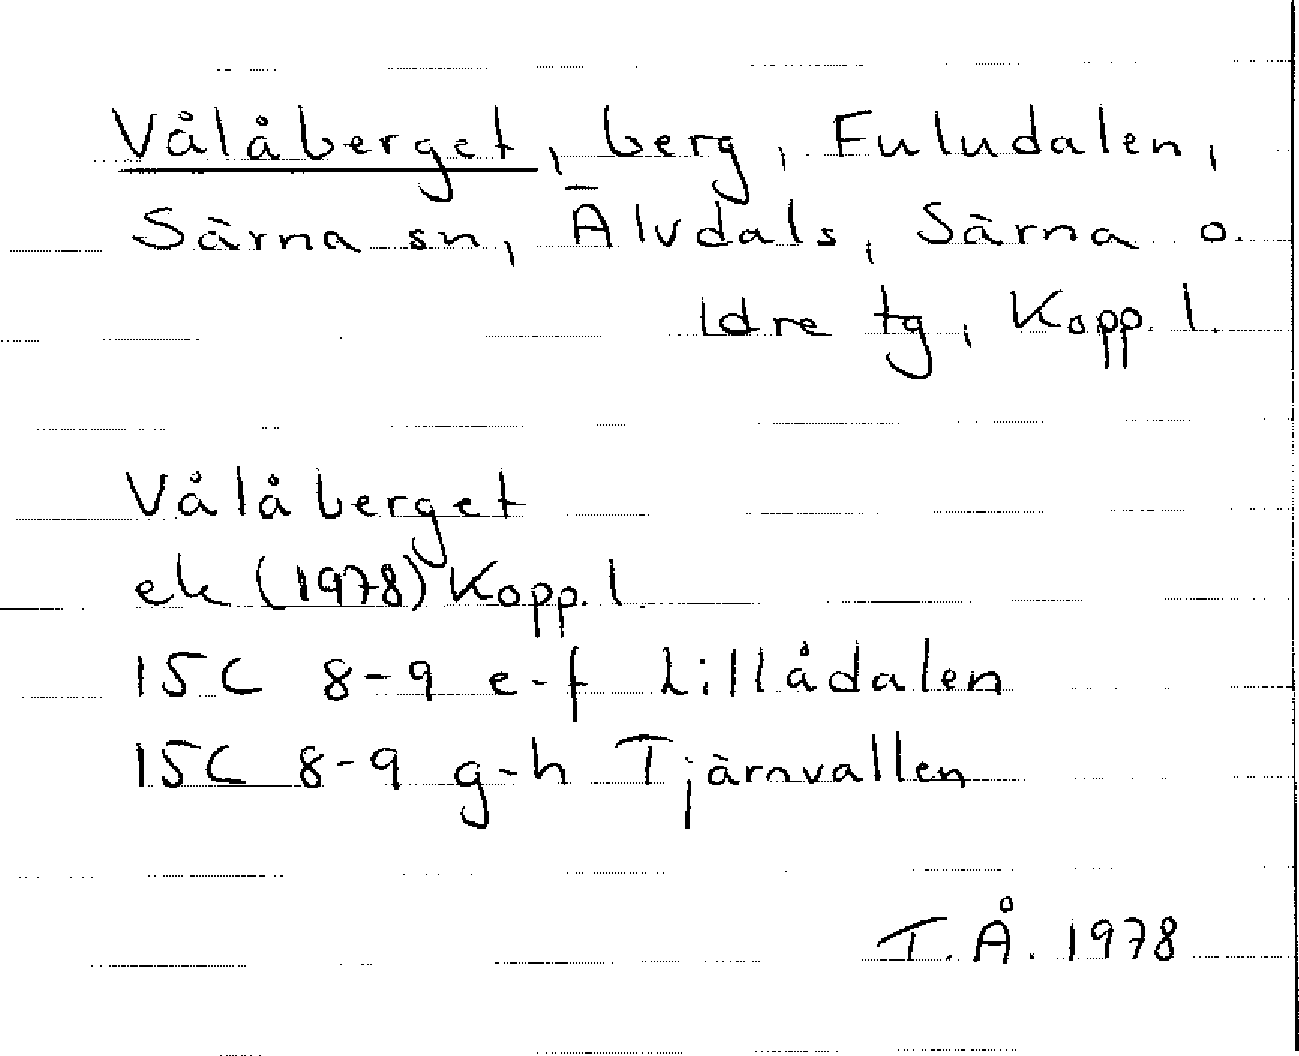 Vålåberget, berg, Fuludalen,
Särna sn, Älvdals, Särna o.
Idre tg, Kopp. l.
Vålåberget
ek (1978) Kopp. l.
15C 8-9 e-f Lillådalen
15C 8-9 g-h Tjärnvallen
T.Å. 1978